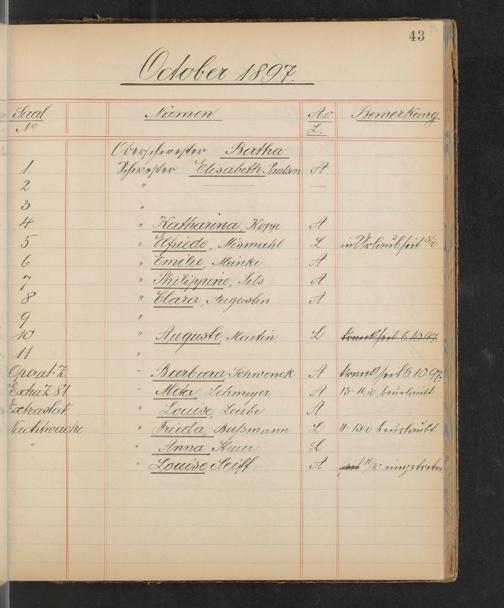 43
October 1897.
Saal No Namen A.v. L. Bemerkung.
Oberschwester Bertha
1 Schwester Elisabeth Paulsen A
2 "
3 "
4 " Katharina, Kopp A
5 " Elfriede, L in Urlaub seit
6 " Emilie, Meinke A
7 " Philippine, Pels A
8 " Clara, Augustin A
9 "
10 " Auguste, Martin L krank seit 6.10.97.
11 "
Operat. Z " Barbara Schwenck A krank seit 6.10.97.
Extra Z 81 " Meta, Lehmeyer A beurlaubt
Extrastat. " Louise, Leube A
Nachtwache " Frieda, Bußmann L beurlaubt
" " Anna, L
" Louise Seiff A eingetreten